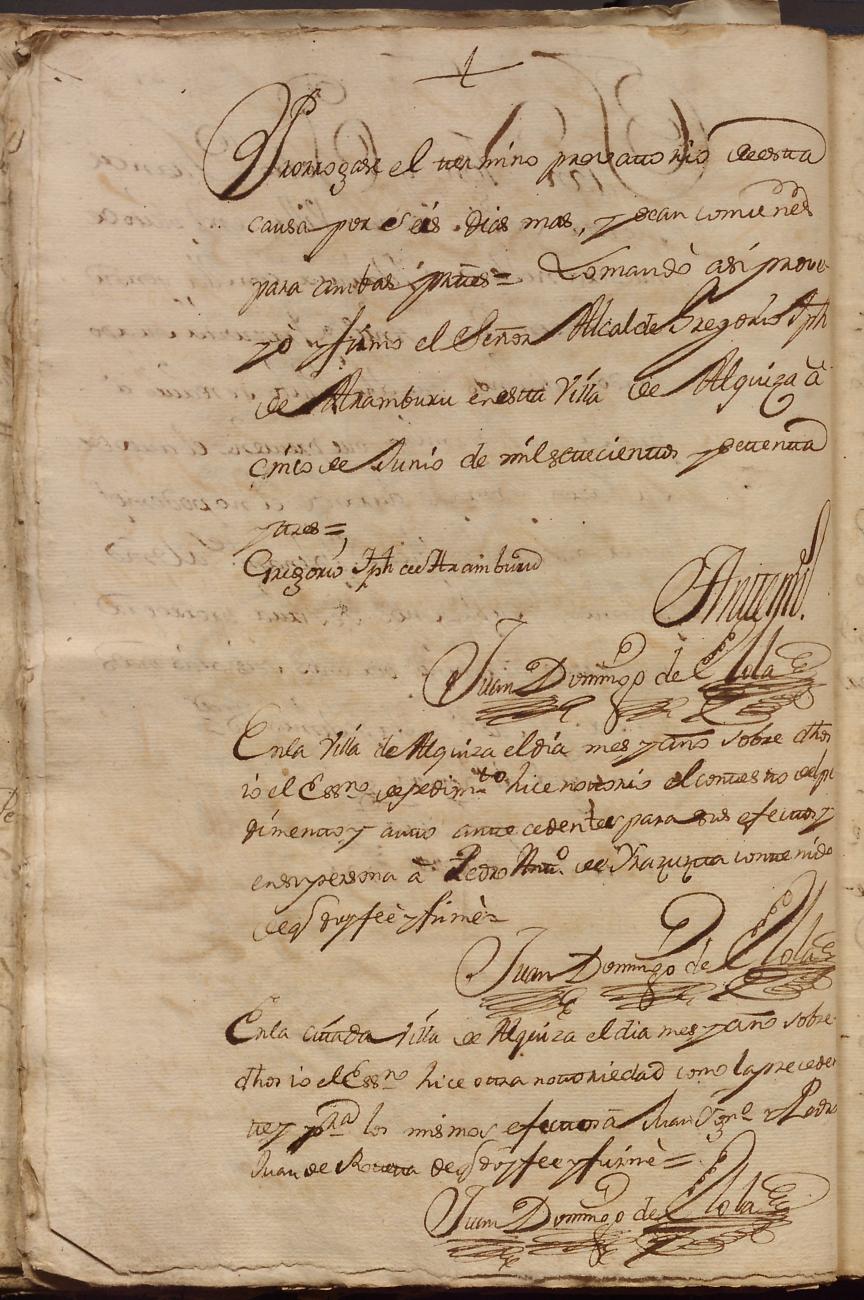 Prorrogase el termino provattorio de estta
causa por seis dias mas, y sean comunes
para ambas parttes = Lo mandò asi prove
yò y firmo el Señor Alcalde Gregorio Jph
de Aramburu en estta Villa de Alquiza à
cinco de Junio de mil settecienttos y settentta
y tres =
Gregorio Jph de Aramburu
Antemi.
Juan Domingo de Olola
En la Villa de Alquiza el dia mes y año sobre dhos
io el Essno de pedimto hice nottorio el contesto del pe
dimentto y autto antecedenttes para sus efecttos y
en su persona à Pedro Anto de Yrazuzta contenido
de q doy fee y firmè =
Juan Domingo de Olola
En la cittada Villa de Alquiza el dia mes y año sobre
dhos io el Essno hice otra nottoriedad como la preceden
tte y para los mismos efecttos à Juan Ygno y Pedro
Juan de de q doy fee y firmè =
Juan Domingo de Olola